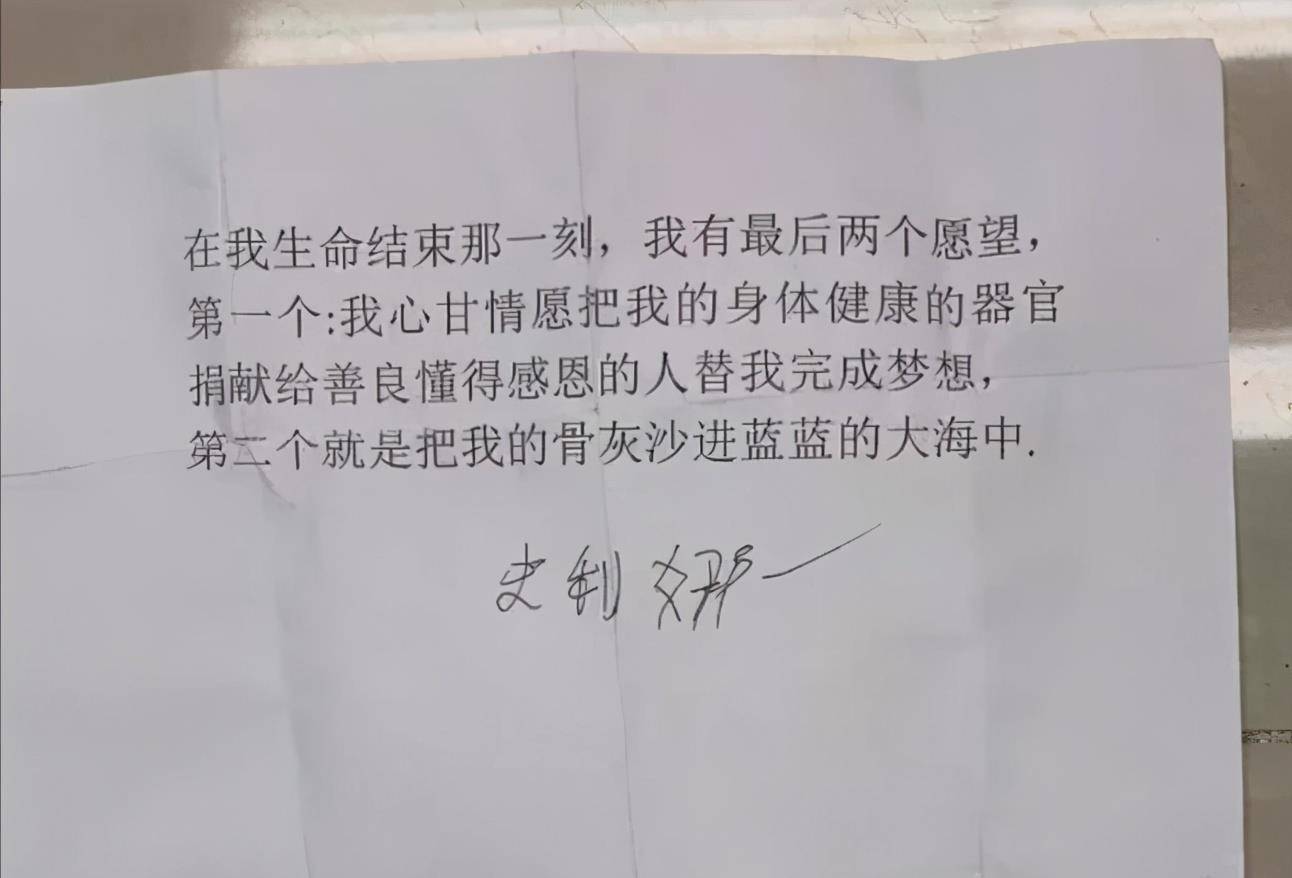 在我生命结束那一刻，我有最后两个愿望，
第一个:我心甘情愿把我的身体健康的器官
捐献给善良懂得感恩的人替我完成梦想，
第二个就是把我的骨灰沙进蓝蓝的大海中.
史利